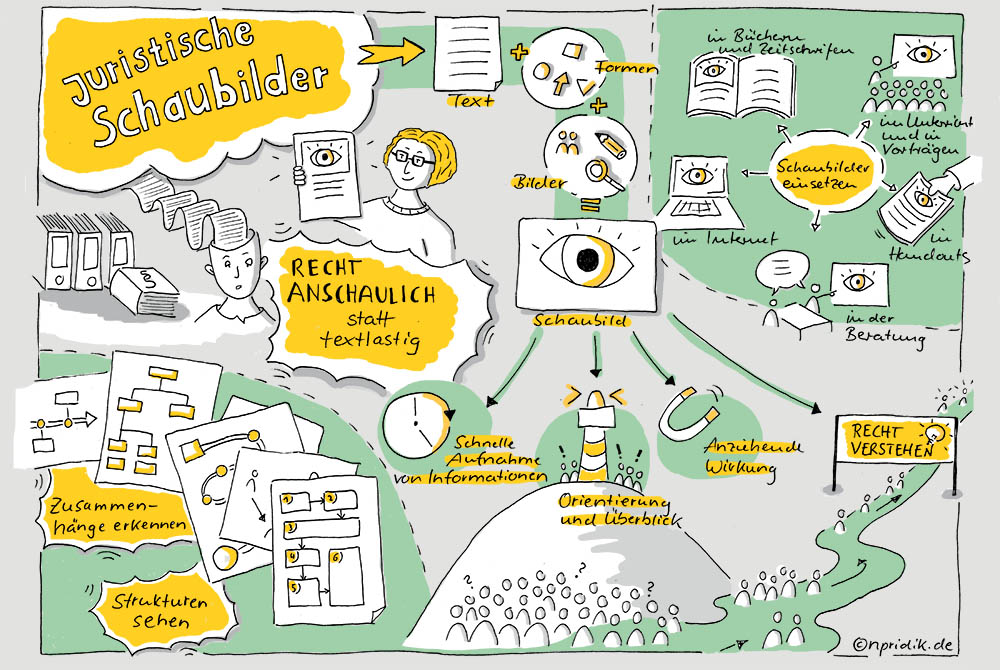 Juristische
Schaubilder
Text
Formen
Bilder
Schaubild
in Büchern
und Zeitschriften
im Unterricht
und in
Vorträgen
Schaubilder
einsetzen
im Internet
in
Handouts
in der
Beratung
§
RECHT
ANSCHAULICH
statt
textlastig
Schnelle
Aufnahme
von Informationen
Orientierung
und Überblick
Anziehende
Wirkung
RECHT
VERSTEHEN
Zusammen-
hänge erkennen
Strukturen
sehen
1)
2)
3)
4)
5)
6)
! !
? ? ?
©npridik.de